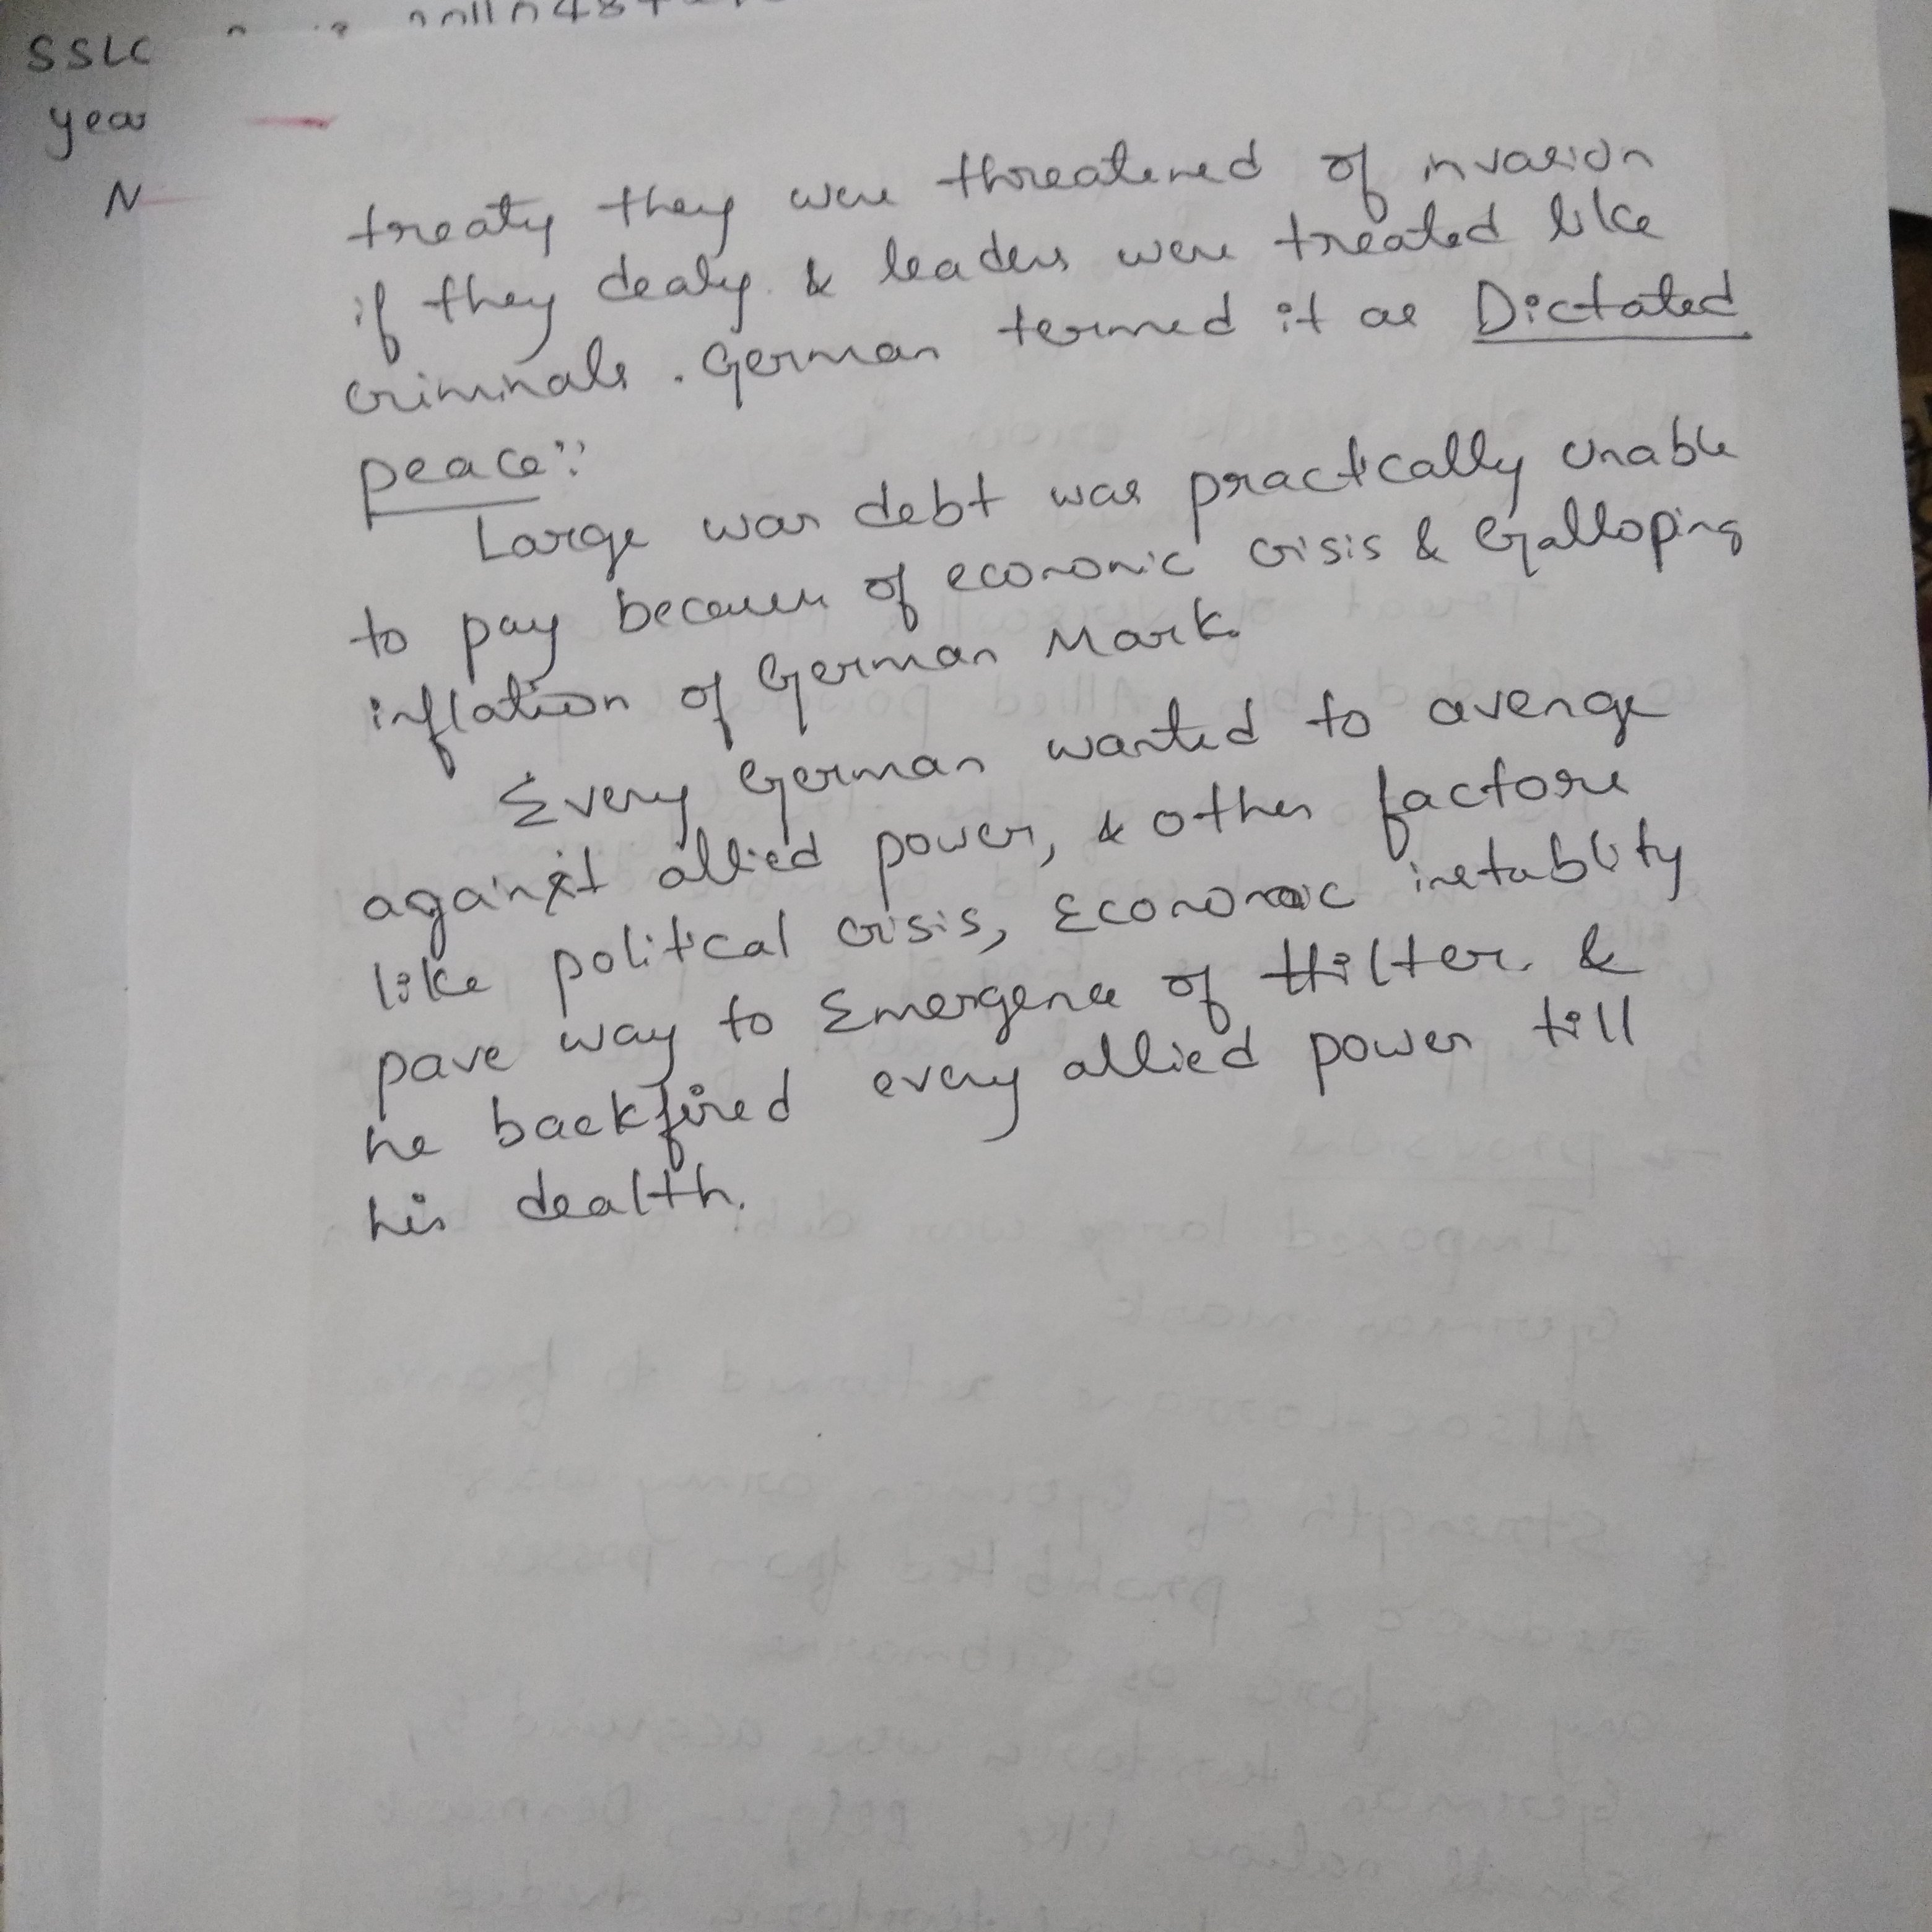 SSLC
year
N
treaty they were threatened of invasion
if they dealy & leaders were treated like
criminals. German termed it as Dictated
peace"
Large war debt was practically unable
to pay because of economic crisis & Galloping
inflation of German Mark.
Every German wanted to avenge
against allied power, & other factors
like political crisis, Economic instablity
pave way to Emergence of Hilter. &
he backfired every allied power till
his dealth.